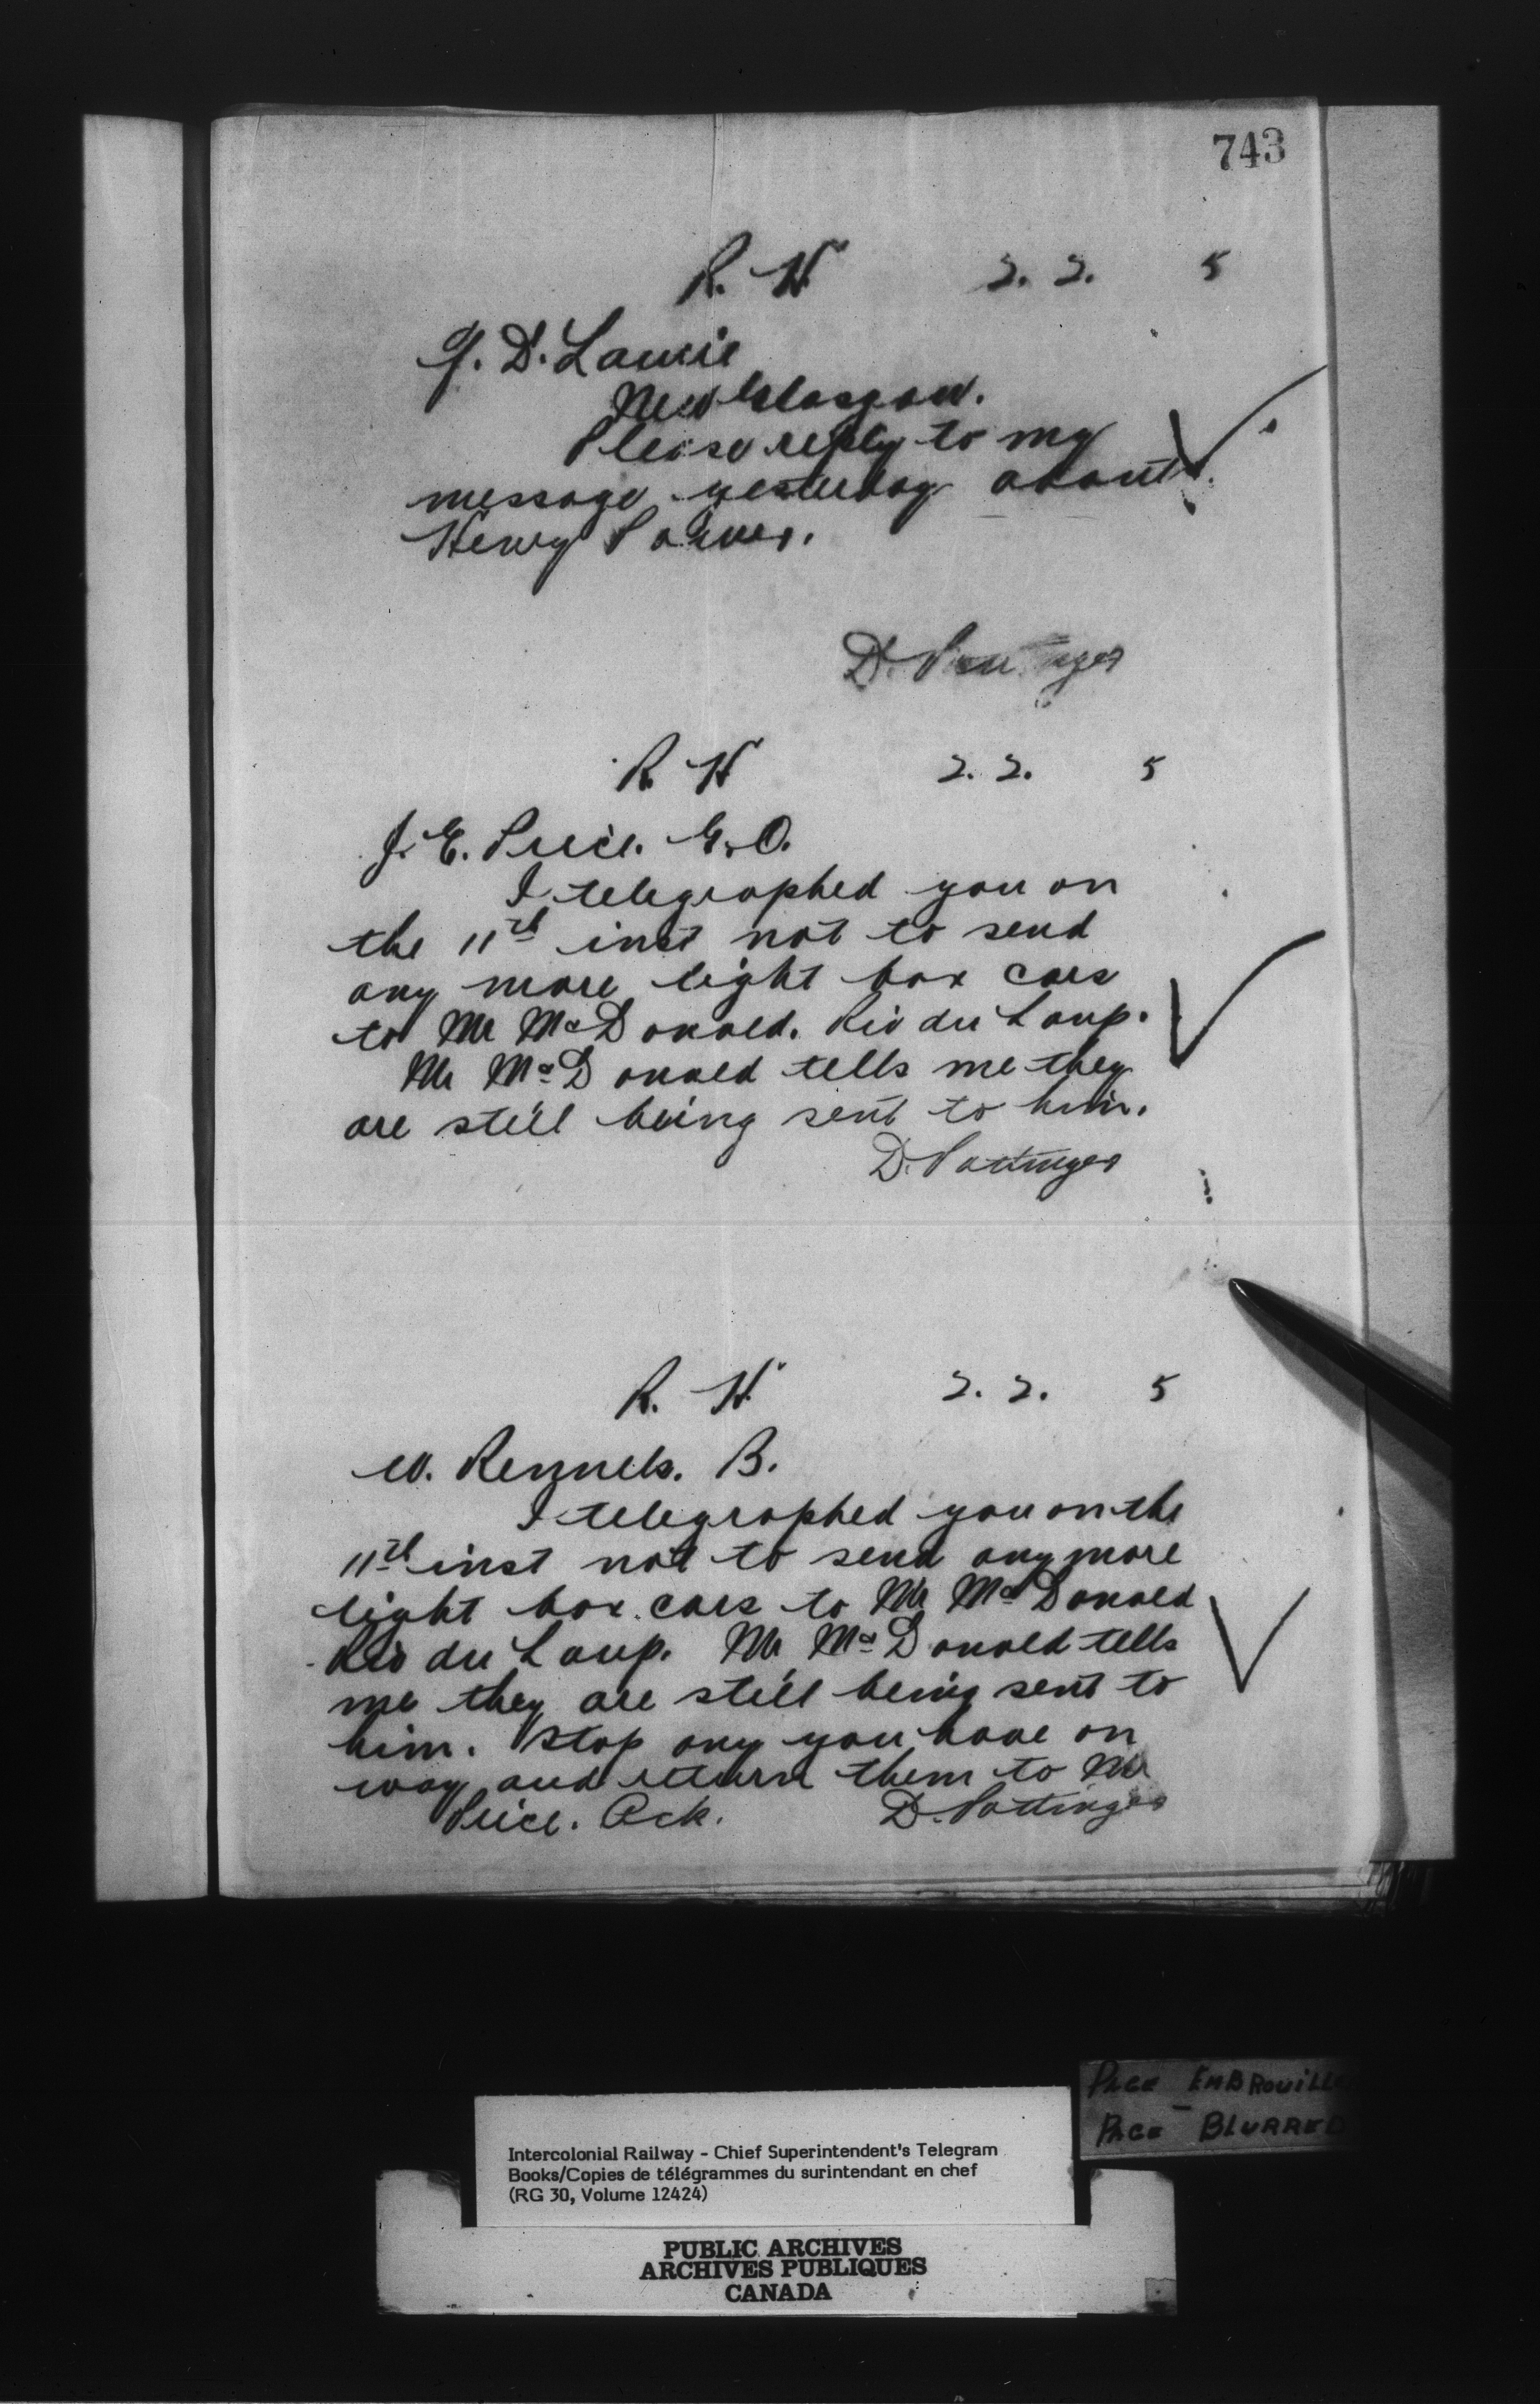 743
R. H 2. 2. 5
J. D. Lawrie
New Glasgow.
Please reply to my
message yesterday about
Henry
D. Pottinger
R. H 2. 2. 5
J. E. Price. G. O.
I telegraphed you on
the 11th inst not to send
any more light box cars
to Mr McDonald. Riv du Loup.
Mr McDonald tells me they
are still being sent to him.
D. Pottinger
R. H. 2. 2. 5
W. Rennels. B.
I telegraphed you on the
11th inst not to send any more
light box cars to Mr McDonald
Riv du Loup. Mr McDonald tells
me they are still being sent to
him. Stop any you have on
way and return them to Mr
Price. Ack. D. Pottinger
PAGE EMBROUILLE
PAGE BLURRED
Intercolonial Railway - Chief Superintendent's Telegram
Books/Copies de télégrammes du surintendant en chef
(RG 30, Volume 12424)
PUBLIC ARCHIVES
ARCHIVES PUBLIQUES
CANADA